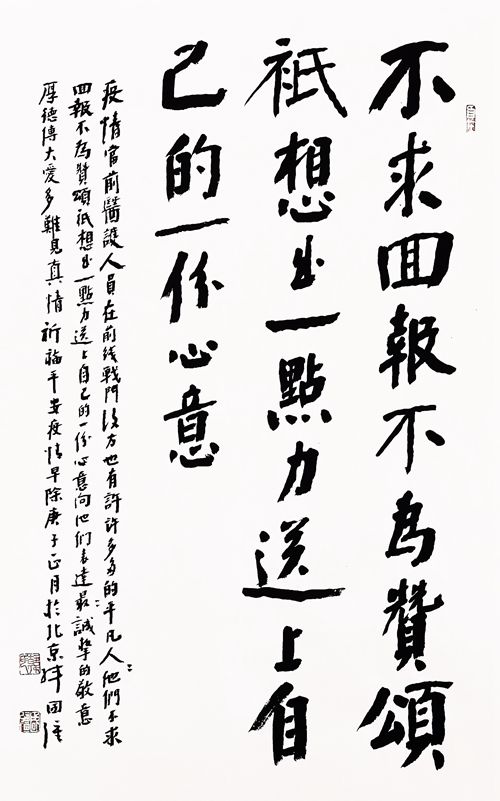 不求囬報不為贊頌
祇想出一點力送上自
己的一份心意
疫情當前醫護人員在前线戰鬥後方也有許許多多的平凡人他們不求
囬報不為贊頌祇想出一點力送上自己的一份心意向他们表達最誠摯的敬意
厚德博大愛多難見真情祈福平安疫情早除庚子正月於北京